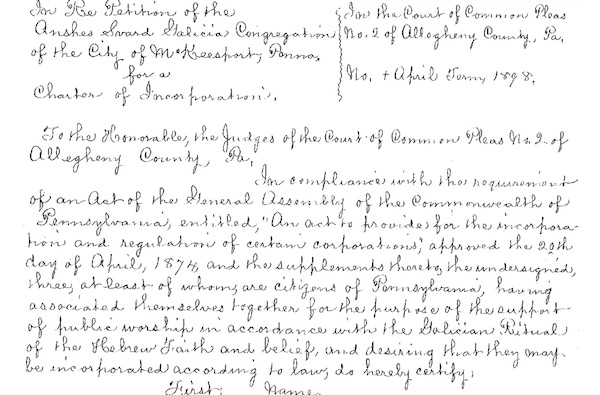 In Re Petition of the
Anshes Svard Galicia Congregation
of the City of McKeesport, Penna.
for a
Charter of Incorporation.
In the Court of Common Pleas
No. 2 of Allegheny County, Pa.
No. + April Term, 1898.
To the Honorable, the Judges of the Court of Common Pleas No. 2 of
Allegheny County, Pa.
In compliance with the requirement
of an Act of the General Assembly of the Commonwealth of
Pennsylvania, entitled, "An act to provide for the incorpora-
tion and regulation of certain corporations," approved the 29th
day of April, 1874, and the supplements thereto, the undersigned,
three, at least of whom, are citizens of Pennsylvania, having
associated themselves together for the purpose of the support
of public worship in accordance with the Galician Ritual
of the Hebrew Faith and belief, and desiring that they may
be incorporated according to law, do hereby certify:
First: Name.